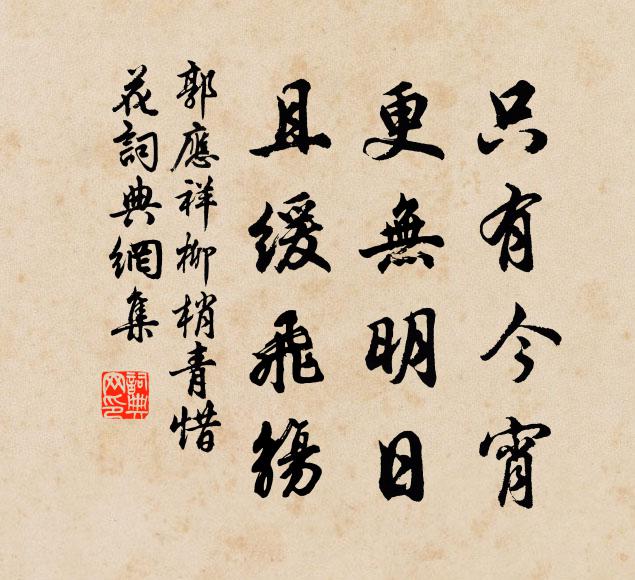 只有今宵
更無明日
且緩飛觴
郭應祥柳梢青惜
花詞典網集
詞典
网印